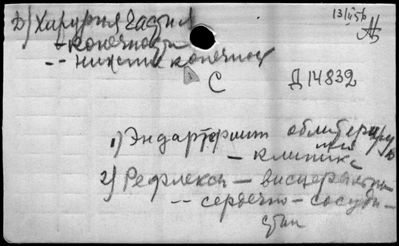 Д) Хирургия частная
13/II 56
- конечности
-- нижние конечност
С
Д 14832
1) Эндартериит облитериру
ющий
- клиника
2) Рефлексы - висцеральные
-- сердечно - сосуди-
стые